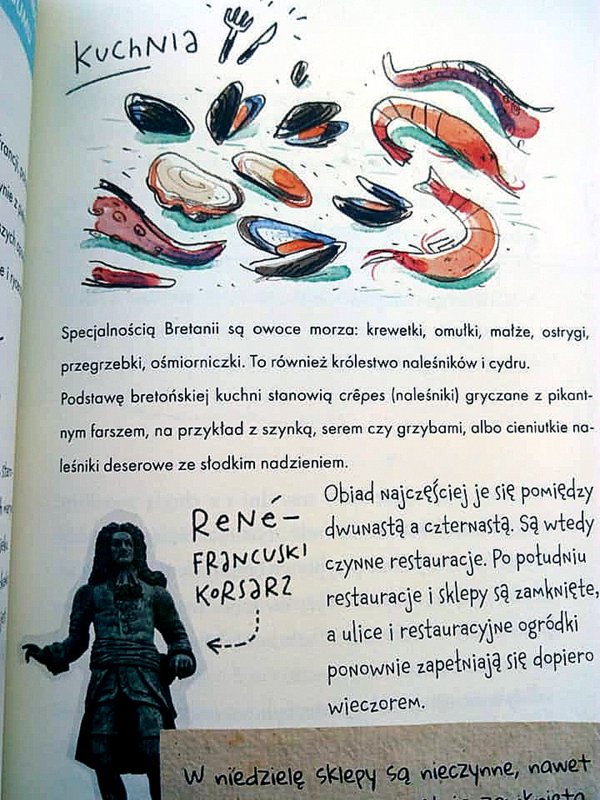 KUCHNIA
Specjalnością Bretanii są owoce morza: krewetki, omułki, małże, ostrygi,
przegrzebki, ośmiorniczki. To również królestwo naleśników i cydru.
Podstawę bretońskiej kuchni stanowią crêpes (naleśniki) gryczane z pikant-
nym farszem, na przykład z szynką, serem czy grzybami, albo cieniutkie na-
leśniki deserowe ze słodkim nadzieniem.
RENÉ–
FRANCUSKI
KORSARZ
Obiad najczęściej je się pomiędzy
dwunastą a czternastą. Są wtedy
czynne restauracje. Po południu
restauracje i sklepy są zamknięte,
a ulice i restauracyjne ogródki
ponownie zapełniają się dopiero
wieczorem.
W niedzielę sklepy są nieczynne, nawet